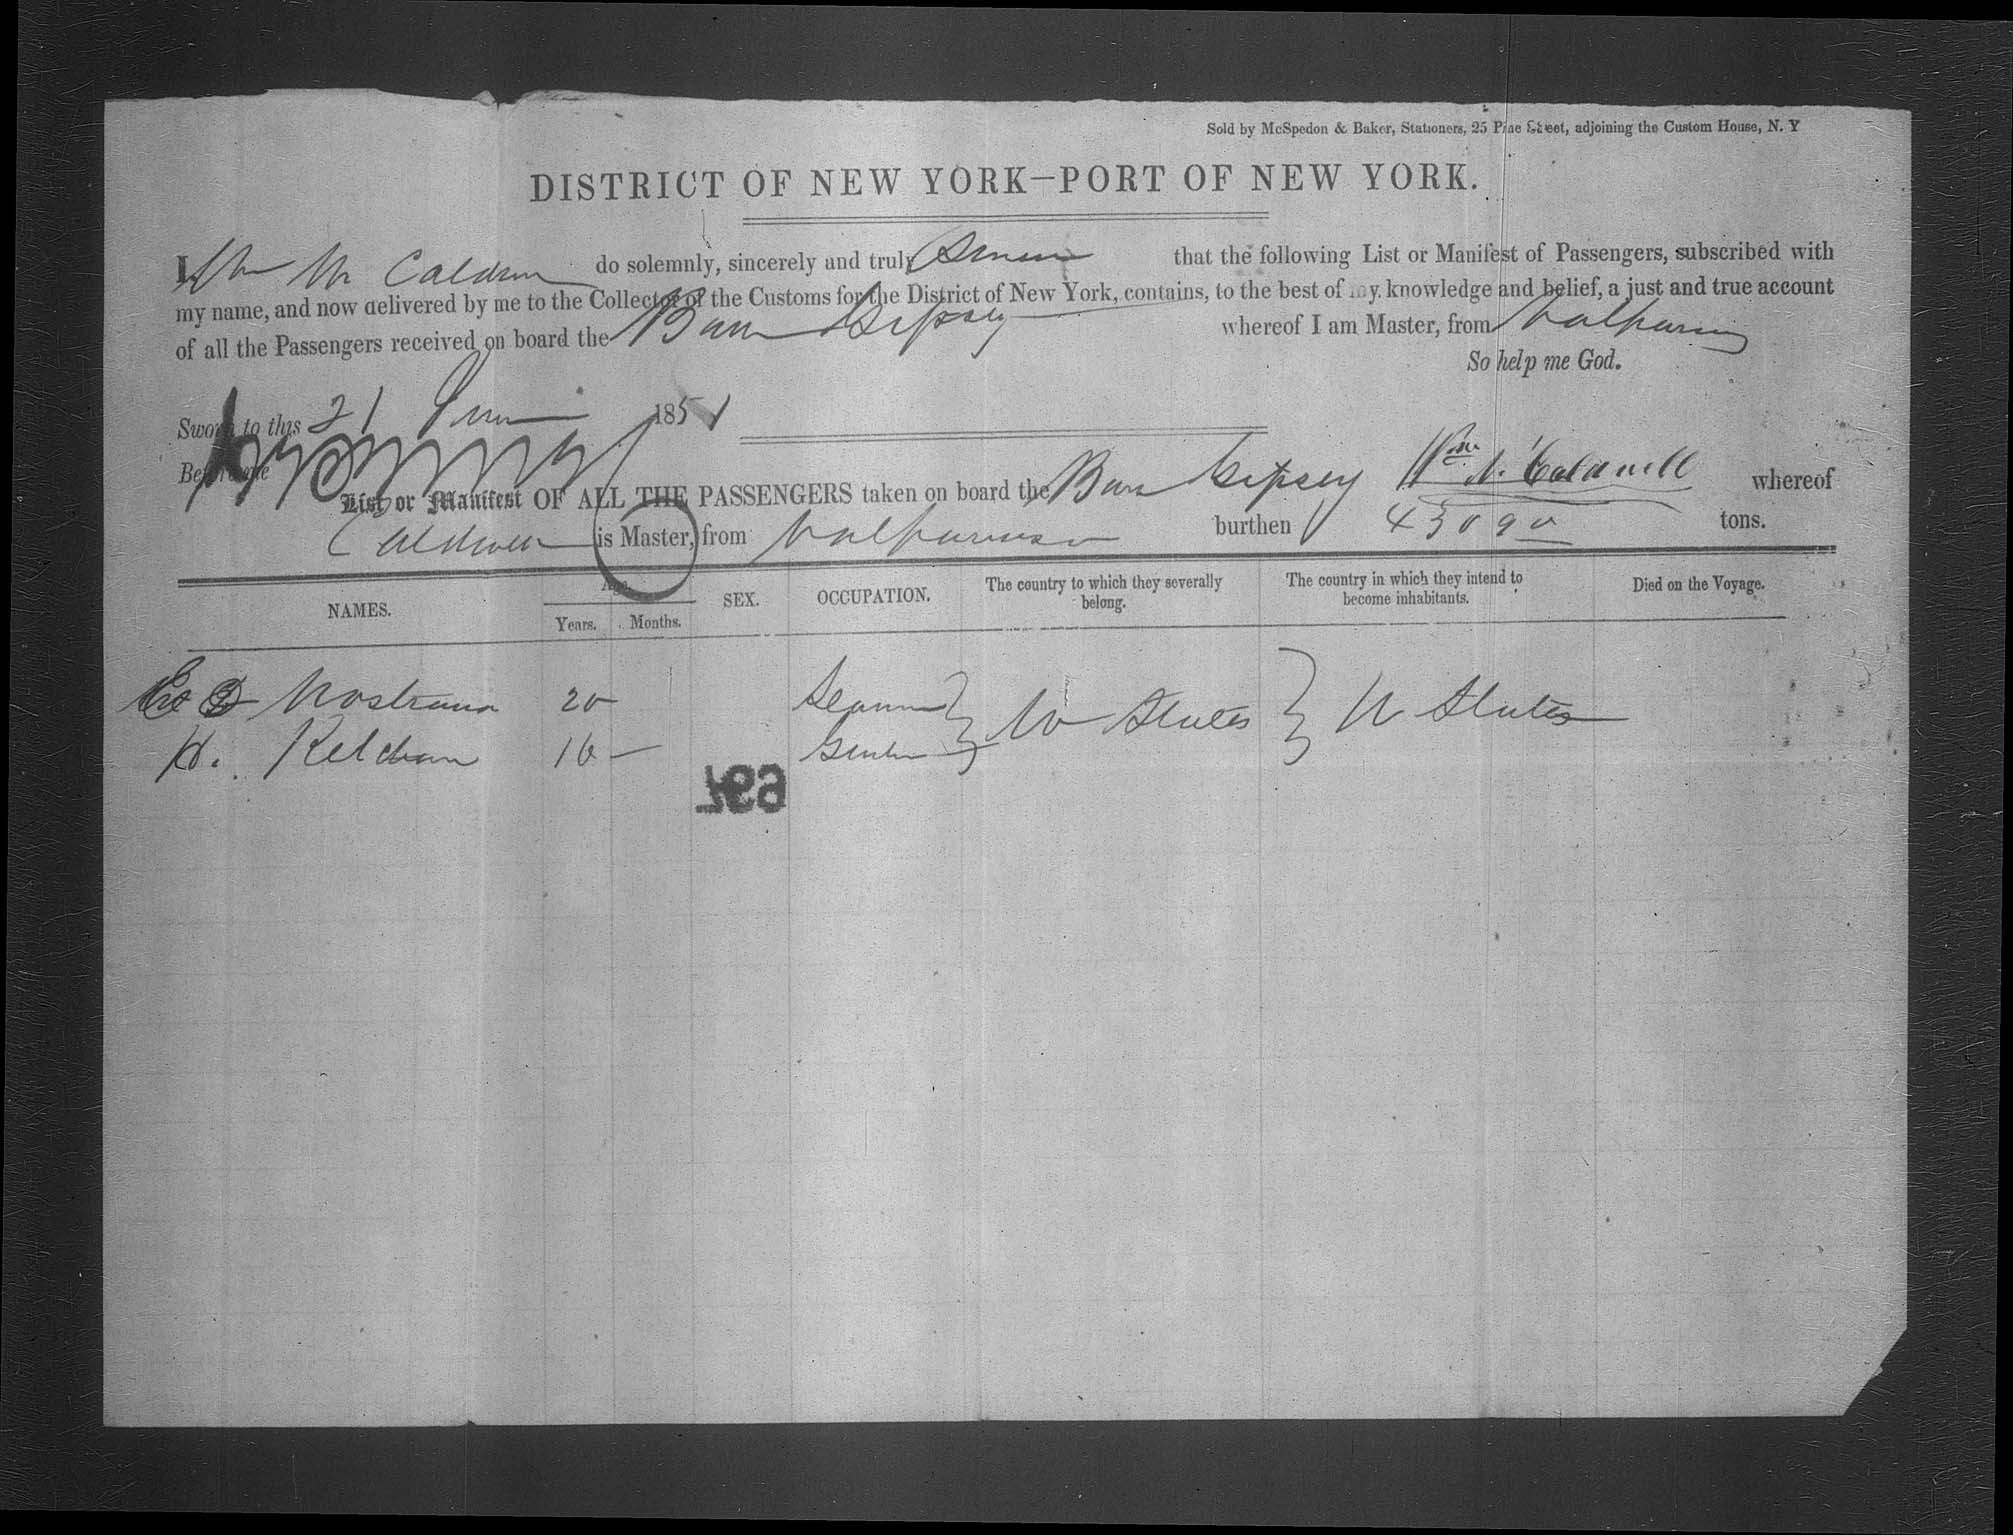 Sold by McSpedon & Baker, Stationers, 25 Pine Street, adjoining the Custom House, N. Y
DISTRICT OF NEW YORK—PORT OF NEW YORK.
I, Wm do solemnly, sincerely and truly that the following List or Manifest of Passengers, subscribed with
my name, and now delivered by me to the Collector of the Customs for the District of New York, contains, to the best of my knowledge and belief, a just and true account
of all the Passengers received on board the Gipsey whereof I am Master, from Valparaiso
So help me God.
Sworn to this 21 1851
Before me
Wm. Caldwell
List or Manifest OF ALL THE PASSENGERS taken on board the Gipsey whereof
Caldwell is Master, from Valparaiso burthen tons.
NAMES. Age. SEX. OCCUPATION. The country to which they severally belong. The country in which they intend to become inhabitants. Died on the Voyage.
Years. Months.
Nostrand 20 Seaman } U States } U States
H. Ketcham 16
769